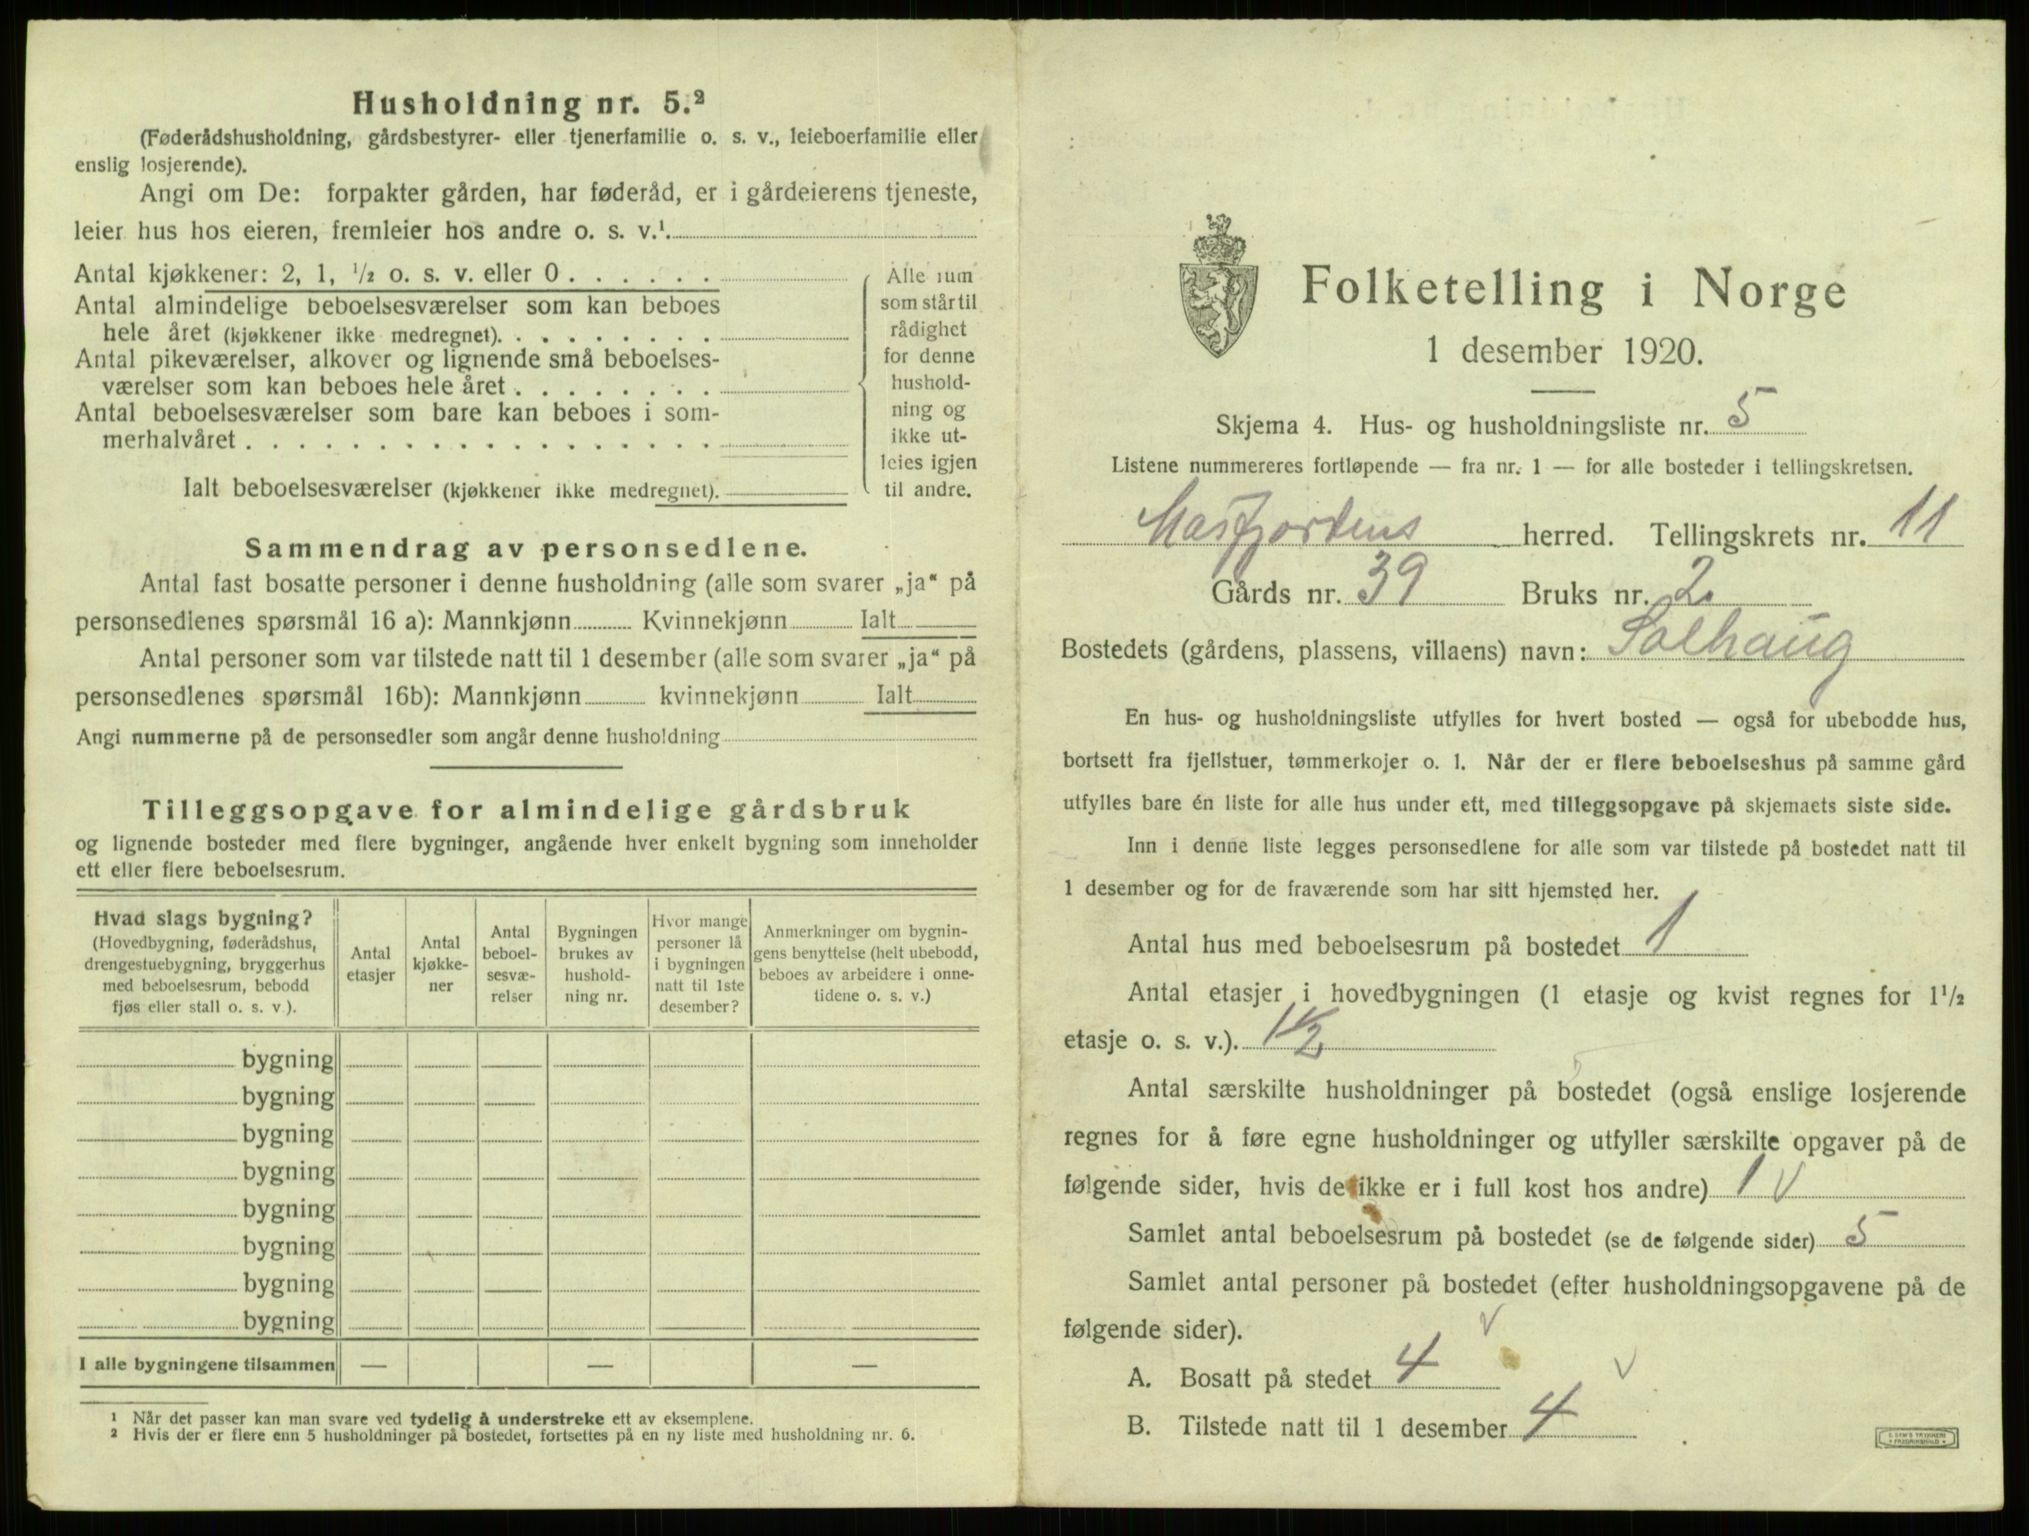 Husholdning nr. 5.²
(Føderådshusholdning, gårdsbestyrer- eller tjenerfamilie o. s. v., leieboerfamilie eller
enslig losjerende).
Angi om De: forpakter gården, har føderåd, er i gårdeierens tjeneste,
leier hus hos eieren, fremleier hos andre o. s. v.¹.
Antal kjøkkener: 2, 1, ½ o. s. v. eller 0 . . . . . .
Antal almindelige beboelsesværelser som kan beboes
hele året (kjøkkener ikke medregnet). . . . . . . . .
Antal pikeværelser, alkover og lignende små beboelses-
værelser som kan beboes hele året . . . . . . . .
Antal beboelsesværelser som bare kan beboes i som-
merhalvåret . . . . . . . . . . . . . . . . . .
Ialt beboelsesværelser (kjøkkener ikke medregnet).
Alle rum
som står til
rådighet
for denne
hushold-
ning og
ikke ut-
leies igjen
til andre.
Sammendrag av personsedlene.
Antal fast bosatte personer i denne husholdning (alle som svarer „ja“ på
personsedlenes spørsmål 16 a): Mannkjønn Kvinnekjønn Ialt
Antal personer som var tilstede natt til 1 desember (alle som svarer „ja“ på
personsedlenes spørsmål 16b): Mannkjønn kvinnekjønn Ialt
Angi nummerne på de personsedler som angår denne husholdning
Tilleggsopgave for almindelige gårdsbruk
og lignende bosteder med flere bygninger, angående hver enkelt bygning som inneholder
ett eller flere beboelsesrum.
Hvad slags bygning?
(Hovedbygning, føderådshus,
drengestuebygning, bryggerhus
med beboelsesrum, bebodd
fjøs eller stall o. s. v.).
Antal
etasjer
Antal
kjøkke-
ner
Antal
beboel-
sesvæ-
relser
Bygningen
brukes av
hushold-
ning nr.
Hvor mange
personer lå
i bygningen
natt til 1ste
desember?
Anmerkninger om bygnin-
gens benyttelse (helt ubebodd,
beboes av arbeidere i onne-
tidene o. s. v.)
bygning
bygning
bygning
bygning
bygning
bygning
bygning
bygning
I alle bygningene tilsammen — — —
¹ Når det passer kan man svare ved tydelig å understreke ett av eksemplene.
² Hvis der er flere enn 5 husholdninger på bostedet, fortsettes på en ny liste med husholdning nr. 6.
Folketelling i Norge
1 desember 1920.
Skjema 4. Hus- og husholdningsliste nr. 5
Listene nummereres fortløpende — fra nr. 1 — for alle bosteder i tellingskretsen.
Masfjordens herred. Tellingskrets nr. 11
Gårds nr. 39 Bruks nr. 2.
Bostedets (gårdens, plassens, villaens) navn: Solhaug
En hus- og husholdningsliste utfylles for hvert bosted — også for ubebodde hus,
bortsett fra fjellstuer, tømmerkojer o. l. Når der er flere beboelseshus på samme gård
utfylles bare én liste for alle hus under ett, med tilleggsopgave på skjemaets siste side.
Inn i denne liste legges personsedlene for alle som var tilstede på bostedet natt til
1 desember og for de fraværende som har sitt hjemsted her.
Antal hus med beboelsesrum på bostedet 1
Antal etasjer i hovedbygningen (1 etasje og kvist regnes for 1½
etasje o. s. v.). 1½
Antal særskilte husholdninger på bostedet (også enslige losjerende
regnes for å føre egne husholdninger og utfyller særskilte opgaver på de
følgende sider, hvis de ikke er i full kost hos andre) 1 v
Samlet antal beboelsesrum på bostedet (se de følgende sider) 5
Samlet antal personer på bostedet (efter husholdningsopgavene på de
følgende sider). v
A. Bosatt på stedet 4 v
B. Tilstede natt til 1 desember 4